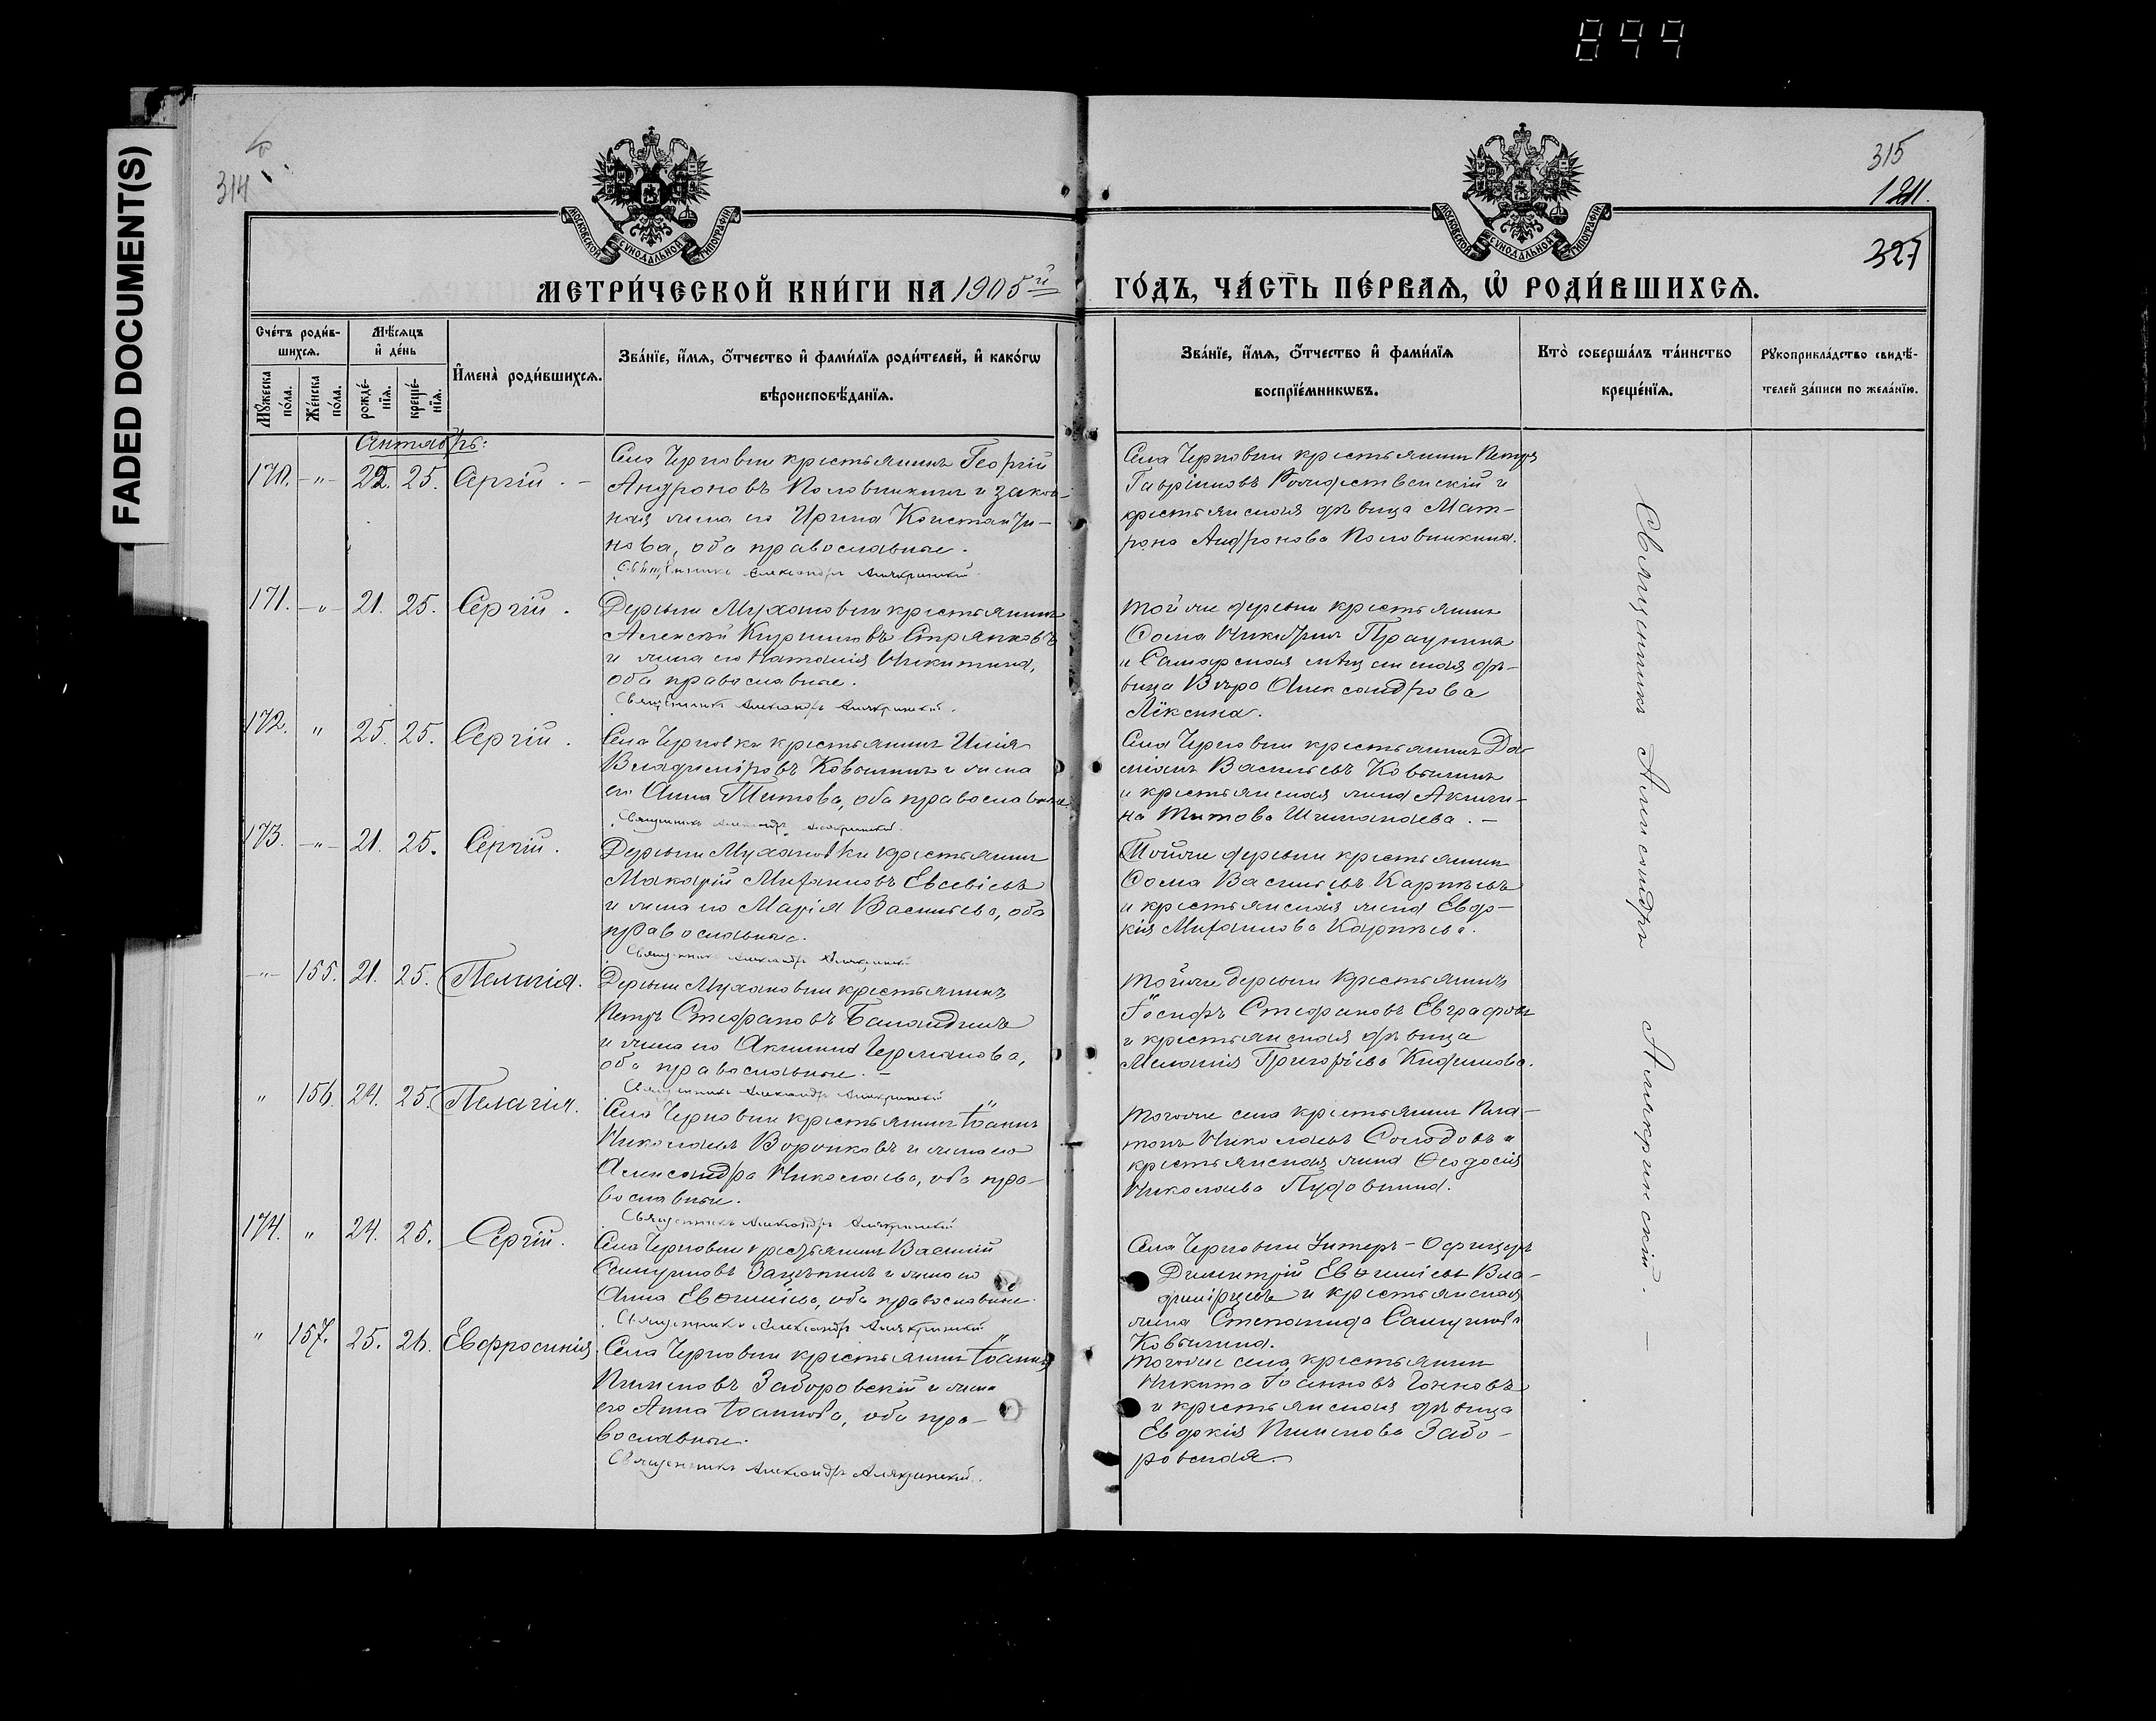 899
FADED DOCUMENT(S)
314
315
1211.
327
МОСКОВСКОЙ СУНОДАЛЬНОЙ ТИПОГРАФІИ
МОСКОВСКОЙ СУНОДАЛЬНОЙ ТИПОГРАФІИ
МЕТРИ́ЧЕСКОЙ КНИ́ГИ НА 1905й ГО́ДЪ, ЧА́СТЬ ПЕ́РВАѦ, Ѡ҆ РОДИ́ВШИХСѦ.
Сче́тъ роди́в-
шихсѧ.
Мѣ́сѧцъ
и҆ де́нь
Мꙋ́жеска
по́ла.
Же́нска
по́ла.
рожде́-
нїѧ.
креще́-
нїѧ.
И҆мена̀ роди́вшихсѧ.
Зва́нїе, и҆́мѧ, ѻ҆́тчество и҆ фами́лїѧ роди́телей, и҆ како́гѡ
вѣроисповѣ́данїѧ.
Зва́нїе, и҆́мѧ, ѻ҆́тчество и҆ фами́лїѧ
воспрїе́мникѡвъ.
Кто̀ соверша́лъ та́инство
креще́нїѧ.
Рꙋкоприкла́дство свидѣ́-
телей за́писи по жела́нїю.
Сентябрь:
170. -"- 22. 25. Сергій. -
Села Черновки крестьянинъ Георгій
Андроновъ Половинкинъ и закон-
ная жена его Ирина Константи-
нова, оба православные.
Священникъ Александръ Алякринскій.
Села Черновки крестьянинъ Петръ
Гавріиловъ Рождественскій и
крестьянская дѣвица Мат-
рона Андронова Половинкина.
171. -"- 21. 25. Сергій.
Деревни Мухановки крестьянинъ
Алексѣй Кирилловъ Стрянковъ
и жена его Наталія Никитина,
оба православные.
Священникъ Александръ Алякринскій.
той же деревни крестьянинъ
Ѳома Никитинъ
и Самарская мѣщанская дѣ-
вица Вѣра Александрова
Лёксина.
172. " 25. 25. Сергій.
Села Черновки крестьянинъ Илія
Владиміровъ Ковылинъ и жена
его Анна Титова, оба православные.
Священникъ Александръ Алякринскій.
Села Черновки крестьянинъ Да-
міанъ Васильевъ Ковылинъ
и крестьянская жена Акили-
на Титова. -
173. -"- 21. 25. Сергій.
Деревни Мухановки крестьянинъ
Макарій Митрановъ Евсевіевъ
и жена его Марія Васильева, оба
православные.
Священникъ Александръ Алякринскій
Той же деревни крестьянинъ
Ѳома Васильевъ Карпѣевъ
и крестьянская жена Евдо-
кія Карпѣева.
-"- 155. 21. 25. Пелагія.
Деревни Мухановки крестьянинъ
Петръ Стефановъ Баландинъ
и жена его Акилина Германова,
оба православные. -
Священникъ Александръ Алякринскій
той же деревни крестьянинъ
Іосифъ Стефановъ Евграфовъ
и крестьянская дѣвица
Меланія Григоріева Кифинова.
" 156. 24. 25. Пелагія.
Села Черновки крестьянинъ Іоаннъ
Николаевъ Ворочковъ и жена его
Александра Николаева, оба пра-
вославные.
Священникъ Александръ Алякринскій
того же села крестьянинъ Пла-
тонъ Николаевъ Солодовъ и
крестьянская жена Ѳеодосія
Николаева Пудовкина.
174. " 24. 25. Сергій.
Села Черновки крестьянинъ Василій
Самуиловъ Зацѣпинъ и жена его
Анна Евѳиміева, оба православные.
Священникъ Александръ Алякринскій
Села Черновки Унтеръ-Офицеръ
Димитрій Евѳиміевъ Вла-
димірцевъ и крестьянская
жена Степанида Самуилова
Ковылина.
" 157. 25. 26. Евфросинія.
Села Черновки крестьянинъ Іоаннъ
Пименовъ Заборовскій и жена
его Анна Іоаннова, оба пра-
вославные.
Священникъ Александръ Алякринскій.
того же села крестьянинъ
Никита Іоанновъ Гонковъ
и крестьянская дѣвица
Евдокія Пименова Забо-
ровская.
Священникъ Александръ Алякринскій. -